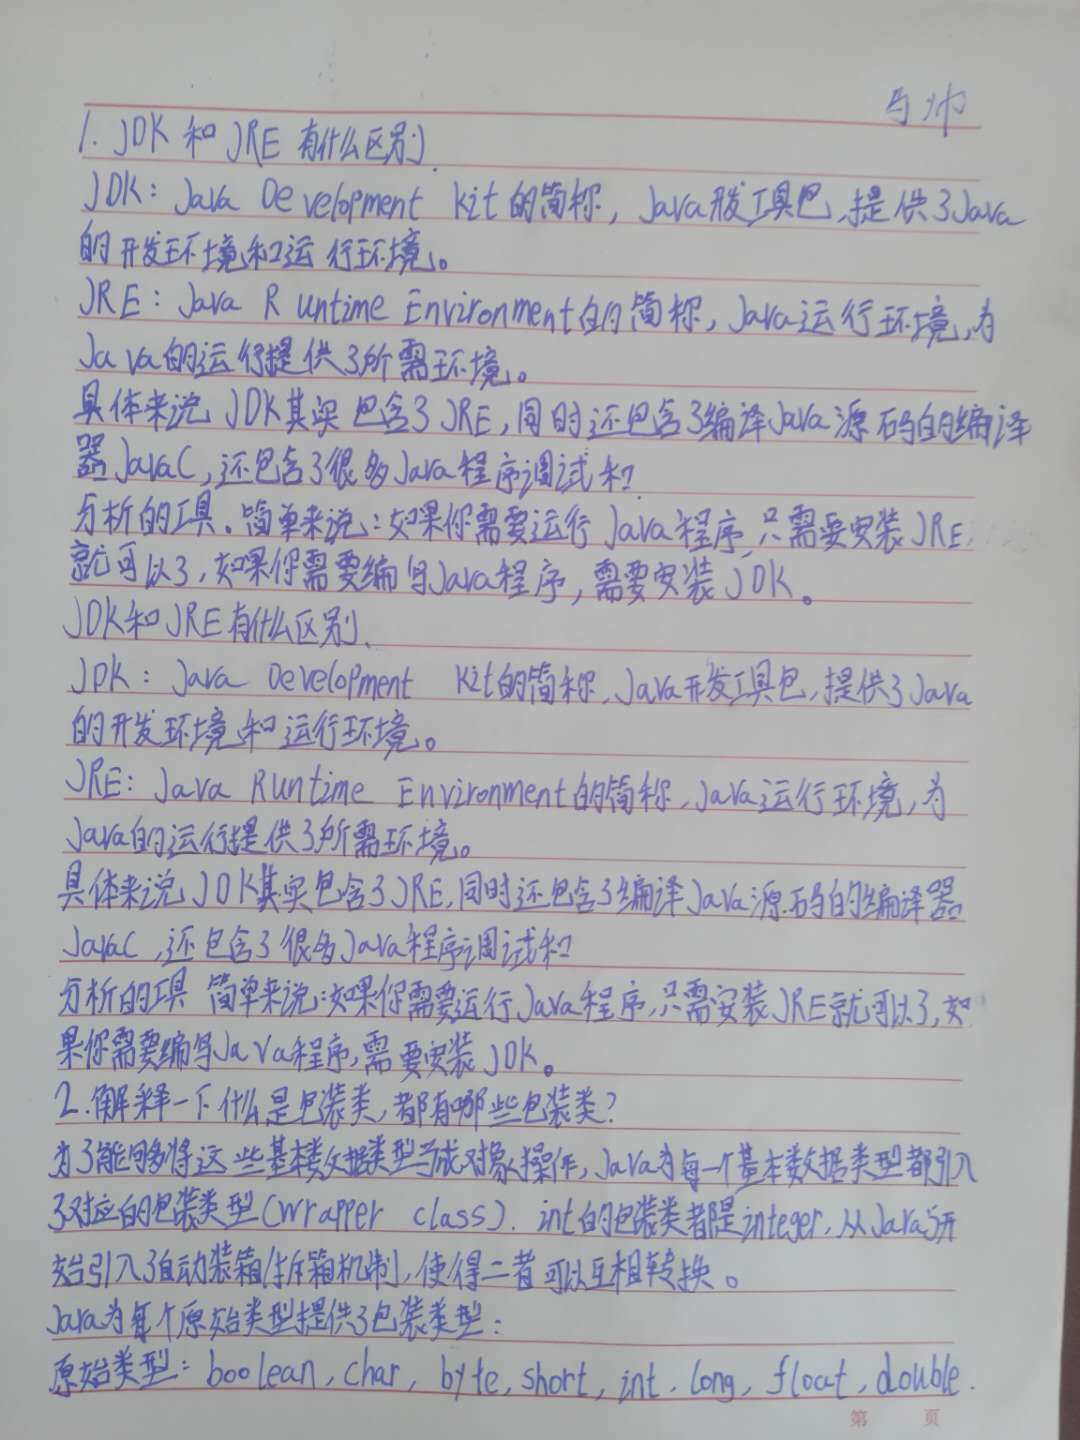 马帅
1. JDK 和 JRE 有什么区别
JDK: Java Development Kit 的简称, Java开发工具包,提供了Java
的开发环境和运行环境。
JRE: Java Runtime Environment的简称, Java运行环境,为
Java的运行提供了所需环境。
具体来说 JDK其实包含了JRE,同时还包含了编译Java源码的编译
器JavaC,还包含了很多Java程序调试和
分析的工具。简单来说:如果你需要运行Java程序,只需要安装JRE
就可以了,如果你需要编写Java程序,需要安装JDK。
JDK和JRE有什么区别、
JDK: Java Development Kit的简称,Java开发工具包,提供了Java
的开发环境和运行环境。
JRE: Java Runtime Environment的简称,Java运行环境,为
Java的运行提供了所需环境。
具体来说JDK其实包含了JRE,同时还包含了编译Java源码的编译器
JavaC,还包含了很多Java程序调试和
分析的工具 简单来说:如果你需要运行Java程序,只需安装JRE就可以了,如
果你需要编写Java程序,需要安装JDK。
2.解释一下什么是包装类,都有哪些包装类?
为了能够将这些基本数据类型当成对象操作,Java为每一个基本数据类型都引入
了对应的包装类型(wrapper class). int的包装类都是integer,从Java5开
始引入了自动装箱/拆箱机制,使得二者可以互相转换。
Java为每个原始类型提供了包装类型:
原始类型: boolean, char, byte, short, int, long, float, double.
第 页